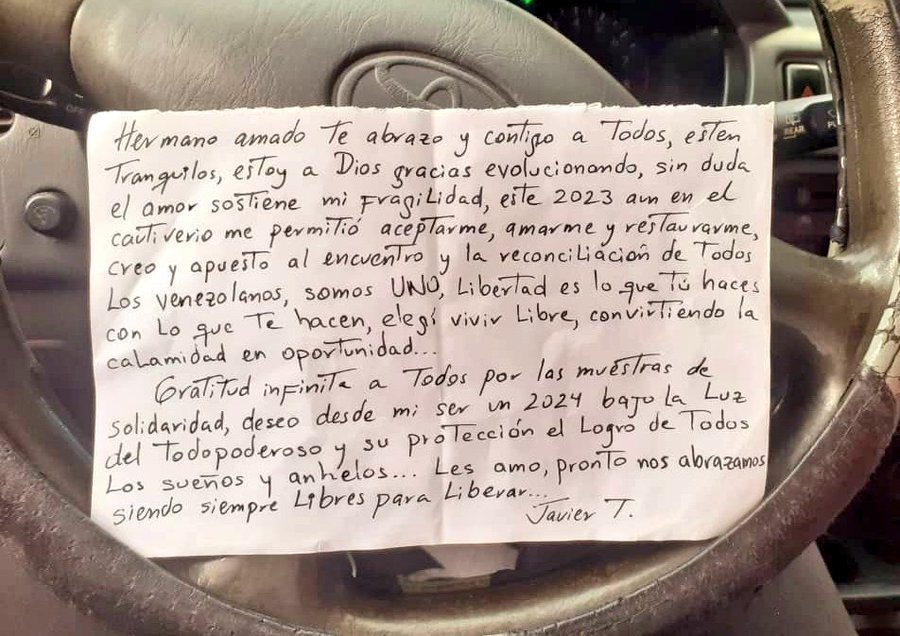 Hermano amado Te abrazo y contigo a Todos, esten
Tranquilos, estoy a Dios gracias evolucionando, sin duda
el amor sostiene mi Fragilidad, este 2023 aun en el
cautiverio me permitió aceptarme, amarme y restaurarme,
creo y apuesto al encuentro y la reconciliación de Todos
Los venezolanos, somos UNO, Libertad es lo que Tú haces
con Lo que Te hacen, elegí vivir Libre, convirtiendo la
calamidad en oportunidad...
Gratitud infinita a Todos por las muestras de
solidaridad, deseo desde mi ser un 2024 bajo La Luz
del Todopoderoso y su protección el Logro de Todos
Los sueños y anhelos... Les amo, pronto nos abrazamos
siendo siempre Libres para Liberar...
Javier T.
OFF
REAR